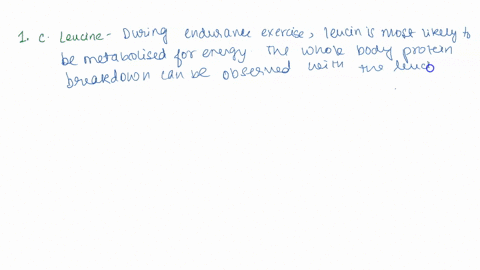 1. C. Leucine - During endurance exercise, leucin is most likely to
be metabolised for energy. The whole body protein
breakdown can be observed with the leuc